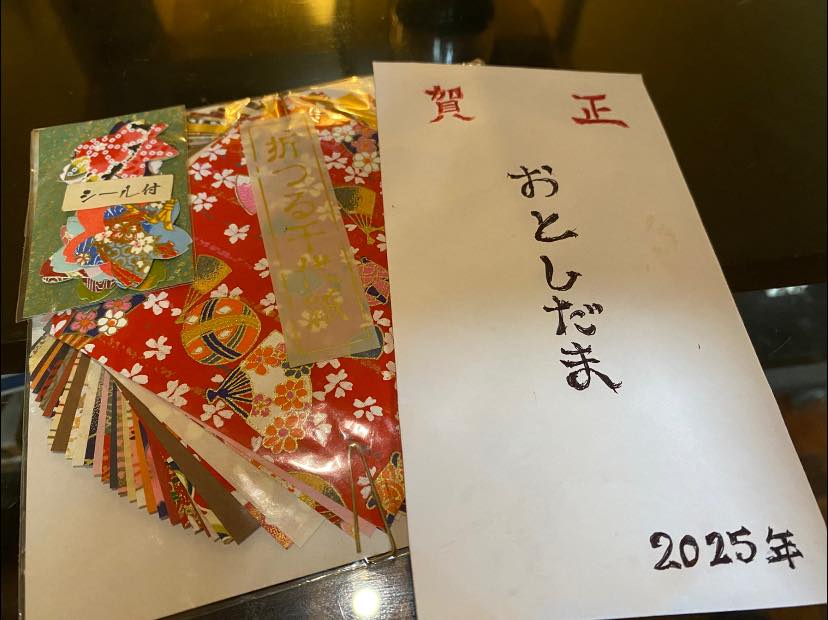 シール付
折つる千代紙
賀正
おとしだま
2025年